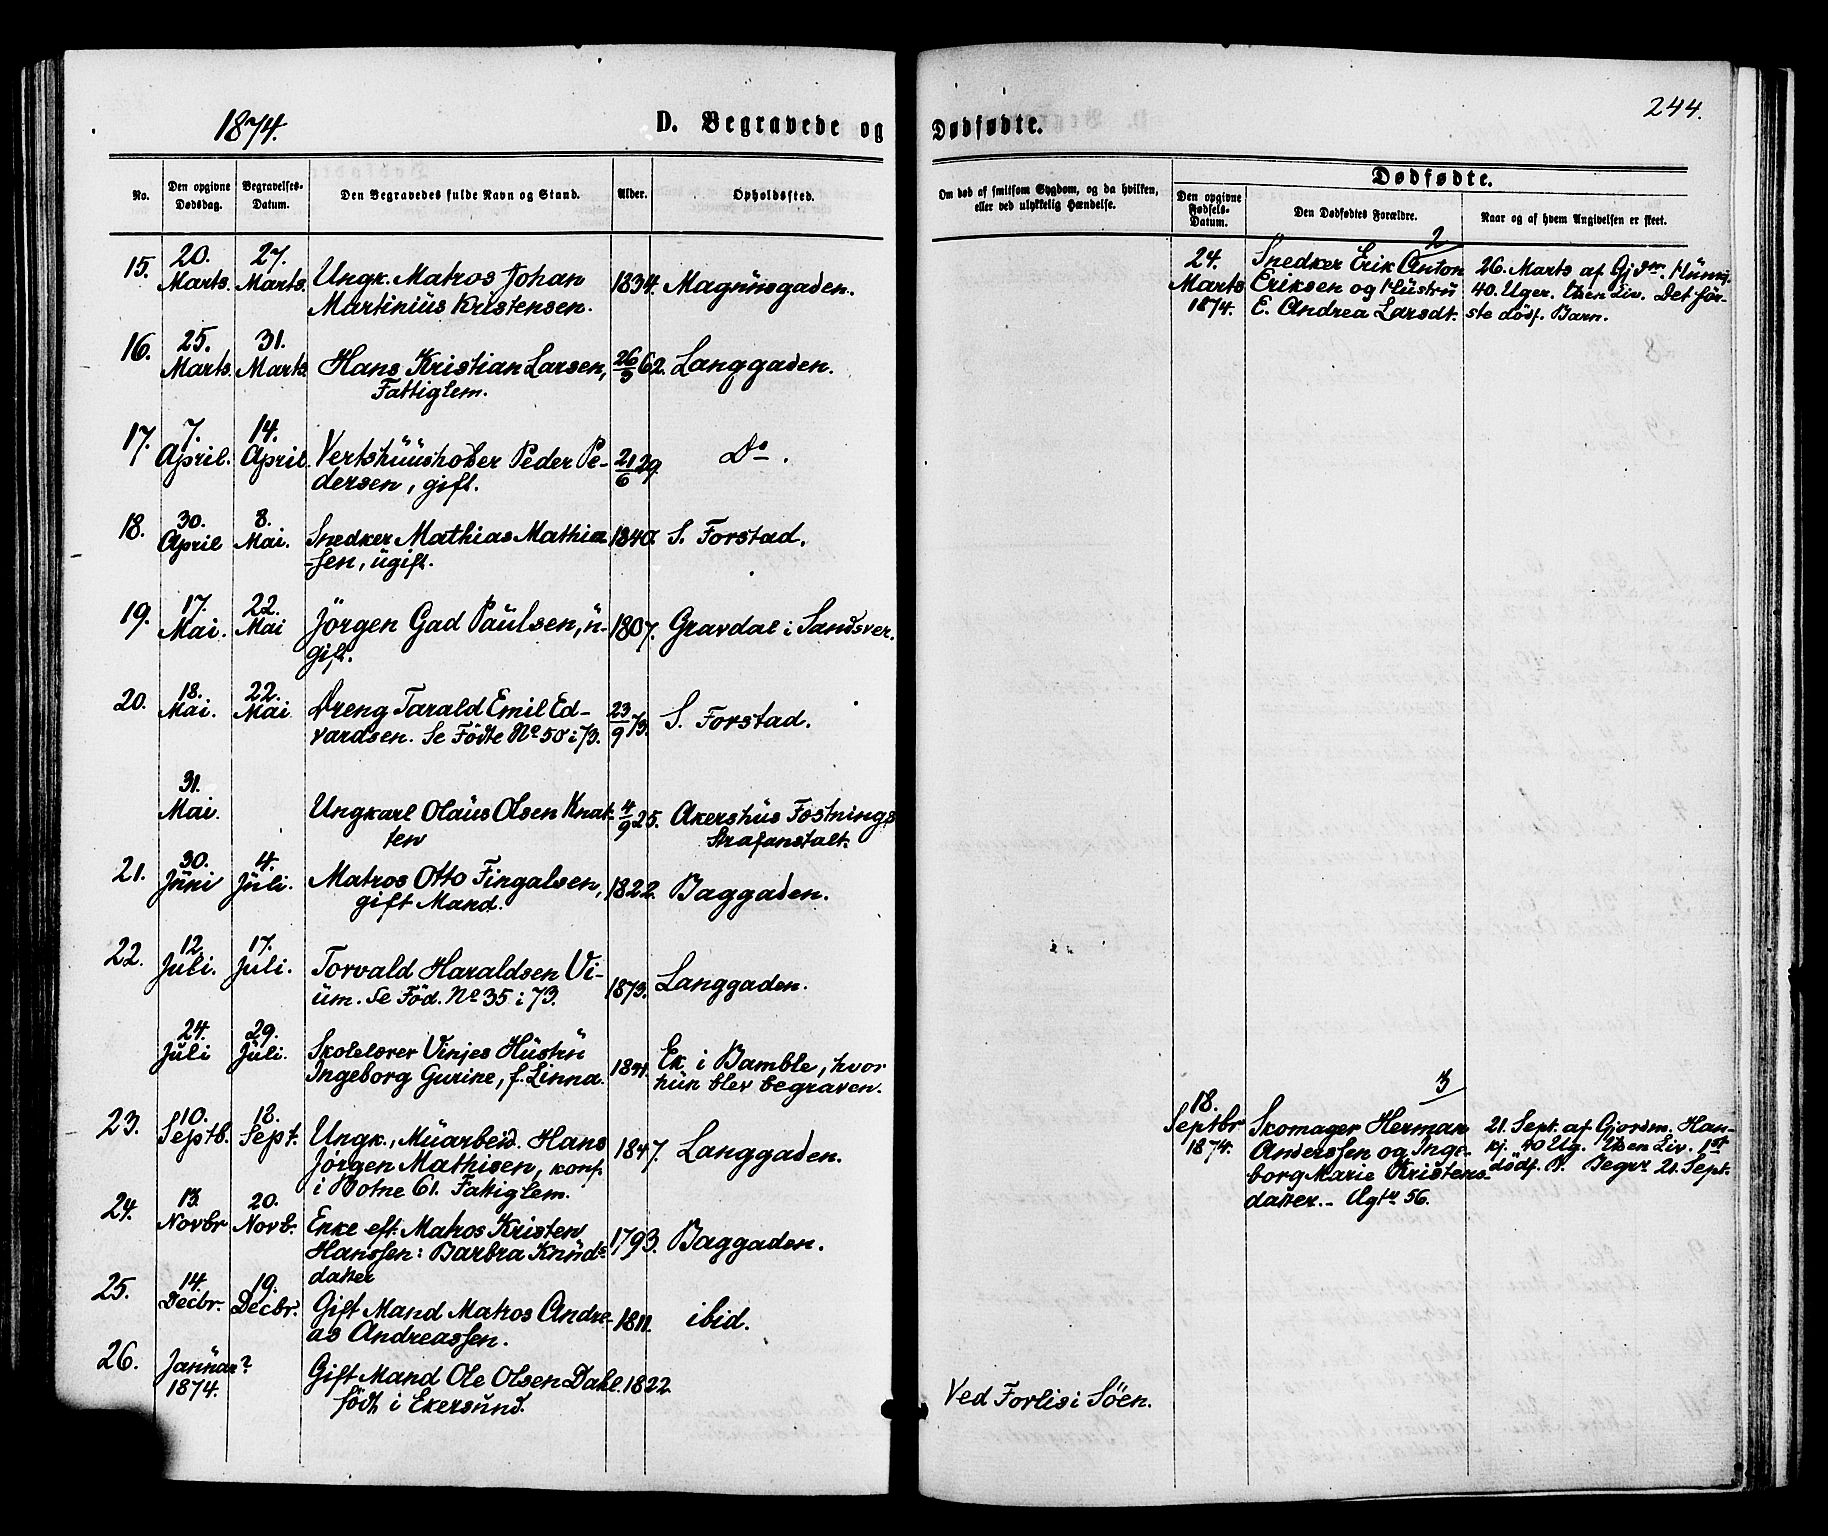 1874.
D. Begravede og
Dødfødte.
244.
No.
Den opgivne
Dødsdag.
Begravelses-
Datum.
Den Begravedes fulde Navn og Stand.
Alder.
Opholdssted.
Om død af smitsom Sygdom, og da hvilken,
eller ved ulykkelig Hændelse.
Dødfødte.
Den opgivne
Fødsels-
Datum.
Den Dødfødtes Forældre.
Naar og af hvem Angivelsen er skeet.
15.
20.
Marts.
27.
Marts.
Ungk. Matros Johan
Martinius Kristensen.
1834.
Magnusgaden.
16.
25.
Marts.
31.
Marts.
Hans Kristian Larsen,
Fattiglem.
26/3 62.
Langgaden.
17.
7.
April.
14.
April.
Vertshuusholder Peder Pe-
dersen, gift.
21/6 29.
Do.
18.
30.
April
8.
Mai.
Snedker Mathias Mathia
-sen, ugift.
1840.
S. Forstad.
19.
17.
Mai.
22.
Mai
Jörgen Gad Paulsen, u-
gift.
1807.
Gravdal i Sandsver.
20.
18.
Mai.
22.
Mai
Dreng Tarald Emil Ed-
vardsen. Se Födte No 50 i 73.
23/9 73.
S. Forstad.
31.
Mai.
Ungkarl Olaus Olsen Knat-
ten
4/9 25.
Akershus Festnings
Strafanstalt.
21.
30.
Juni
4.
Juli.
Matros Otto Fingalsen,
gift Mand.
1822.
Baggaden.
22.
12.
Juli.
17.
Juli.
Torvald Haraldsen Vi-
um. Se Föd. No 35 i 73.
1873.
Langgaden.
24.
Juli
29.
Juli.
Skolelærer Vinjes Hustru
Ingeborg Gurine, f. Linna.
1841.
Ek i Bamble, hvor
hun blev begraven.
23.
10.
Septb.
18.
Sept.
Ungk., Muarbeid. Hans
Jørgen Mathisen, konf.
i Botne 61. Fattiglem.
1847.
Langgaden.
24.
13.
Novbr
20.
Novb.
Enke eft. Matros Kristen
Hanssen: Barbra Knuds
datter
1793.
Baggaden.
25.
14.
Decbr.
19.
Decbr.
Gift Mand Matros Andre-
as Andreassen.
1811.
ibid.
26.
Januar?
1874.
Gift Mand Ole Olsen Dahl.
födt i Ekersund.
1822.
Ved Forlis i Söen.
24.
Marts
1874.
2
Snedker Erik Anton
Eriksen og Hustru
E. Andrea Larsdt.
26. Marts af Gjdm.
40. Uger. Uden Liv. Det för-
ste dödf. Barn.
18.
Septbr
1874.
3
Skomager Herman
Anderssen og Inge-
borg Marie Kristens-
datter. - Ugtr 56.
21. Sept. af Gjordm. Han-
kj. 40 Ug. Uden Liv. 1st
dödf. B. Begr. 21. Sept.